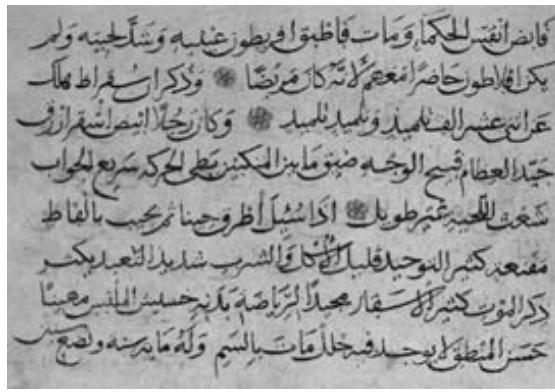 قابض انفس الحكما ومات فاطبق اقريطون عينيه وشد لحييه ولم
يكن افلاطون حاضرا معهم لانه كان مريضا وذكر ان سقراط هلك
عن اثنى عشر الف تلميذ وتلميذ تلميذ وكان رجلا ابيض اشقر ازرق
جيد العظام قبيح الوجه ضيق ما بين المنكبين بطى الحركه سريع الجواب
شعث اللحيه غير طويل اذا سئل اطرق حينا ثم يجيب بالفاظ
مقنعه كثير التوحيد قليل الاكل والشرب شديد التعبد يكثر
ذكر الموت كثير الاسفار مجيدا لرياضه بدنه خسيس الملبس مهيبا
حسن المنطق لا يوجد فيه خلل مات بالسم وله مايه سنه وبضع